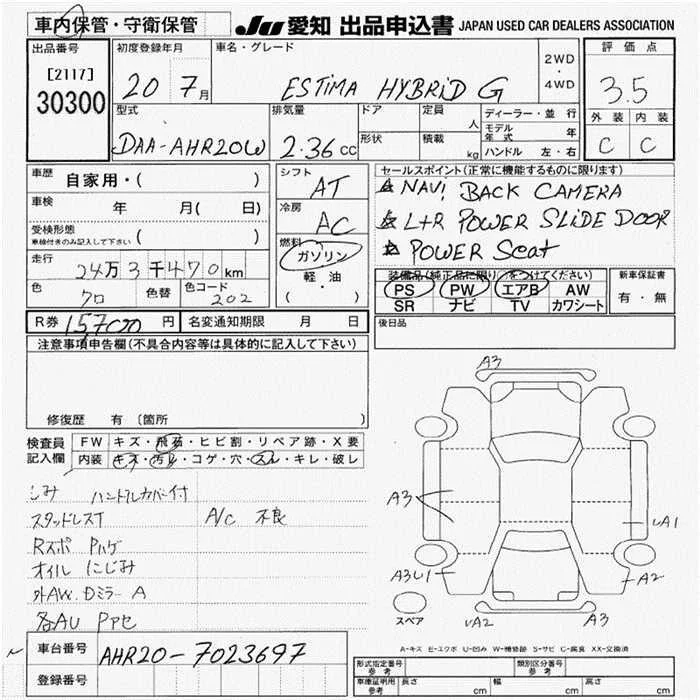 車内保管・守衛保管 JU 愛知 出品申込書 JAPAN USED CAR DEALERS ASSOCIATION
出品番号 初度登録年月 車名・グレード 評価点
[2117] 20 7月 ESTIMA HYBRiD G 2WD ・ 4WD 3.5
30300
型式 排気量 ドア 定員 人 ディーラー・並行 外装 内装
DAA-AHR20W 2.36cc 形状 積載 kg モデル年式 年 C C
ハンドル 左・右
車歴 自家用・( ) シフト AT セールスポイント(正常に機能するものに限ります)
車検 年 月( 日) 冷房 AC ☆ NAVI BACK CAMERA
受検形態 ( ) ☆ L+R POWER SLiDE DOOR
車検付きのみ記入して下さい 燃料 ガソリン ☆ POWER Seat
走行 24万3千470km 軽油 装備品(純正品に限り、○をつけてください) 新車保証書
色 クロ 色替 色コード 202 ( ) PS PW エアB AW 有・無
SR ナビ TV カワシート
R券 円 名変通知期限 月 日 後日品
注意事項申告欄(不具合内容等は具体的に記入して下さい)
修復歴 有 〔箇所 〕
検査員 FW キズ・飛石・ヒビ割・リペア跡・X要
記入欄 内装 キズ・汚れ・コゲ・穴・スレ・キレ・破レ
シミ ハンドルカバー付
スタッドレスT A/C 不良
Rスポ Pハゲ
オイル にじみ
外AW.Dミラー A
各AU Pアセ
A3
A3
A1
A3U1 A2
スペア UA2 A3
A-キズ E-エクボ U-凹み W-補修跡 S-サビ C-腐食 XX-交換済
車台番号 AHR20-7023697
登録番号
形式指定番号 参考 類別区分番号 参考
車庫証明用 参考 長さ cm 幅 cm 高さ cm